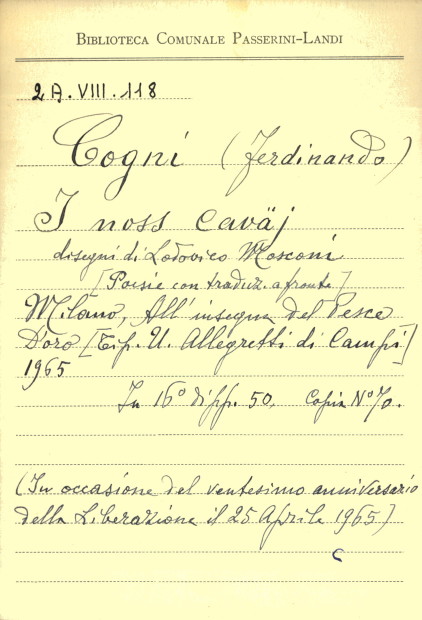 BIBLIOTECA COMUNALE PASSERINI-LANDI
2A.VIII.118
Cogni (Ferdinando)
I noss caväj
disegni di Lodovico Mosconi
[Poesie con traduz. a fronte]
Milano, All'insegna del Pesce
D'oro [Tip. U. Allegretti di Campi]
1965
In 16° di pp. 50. Copia N° 70.
(In occasione del ventesimo anniversario
della Liberazione il 25 Aprile 1965)